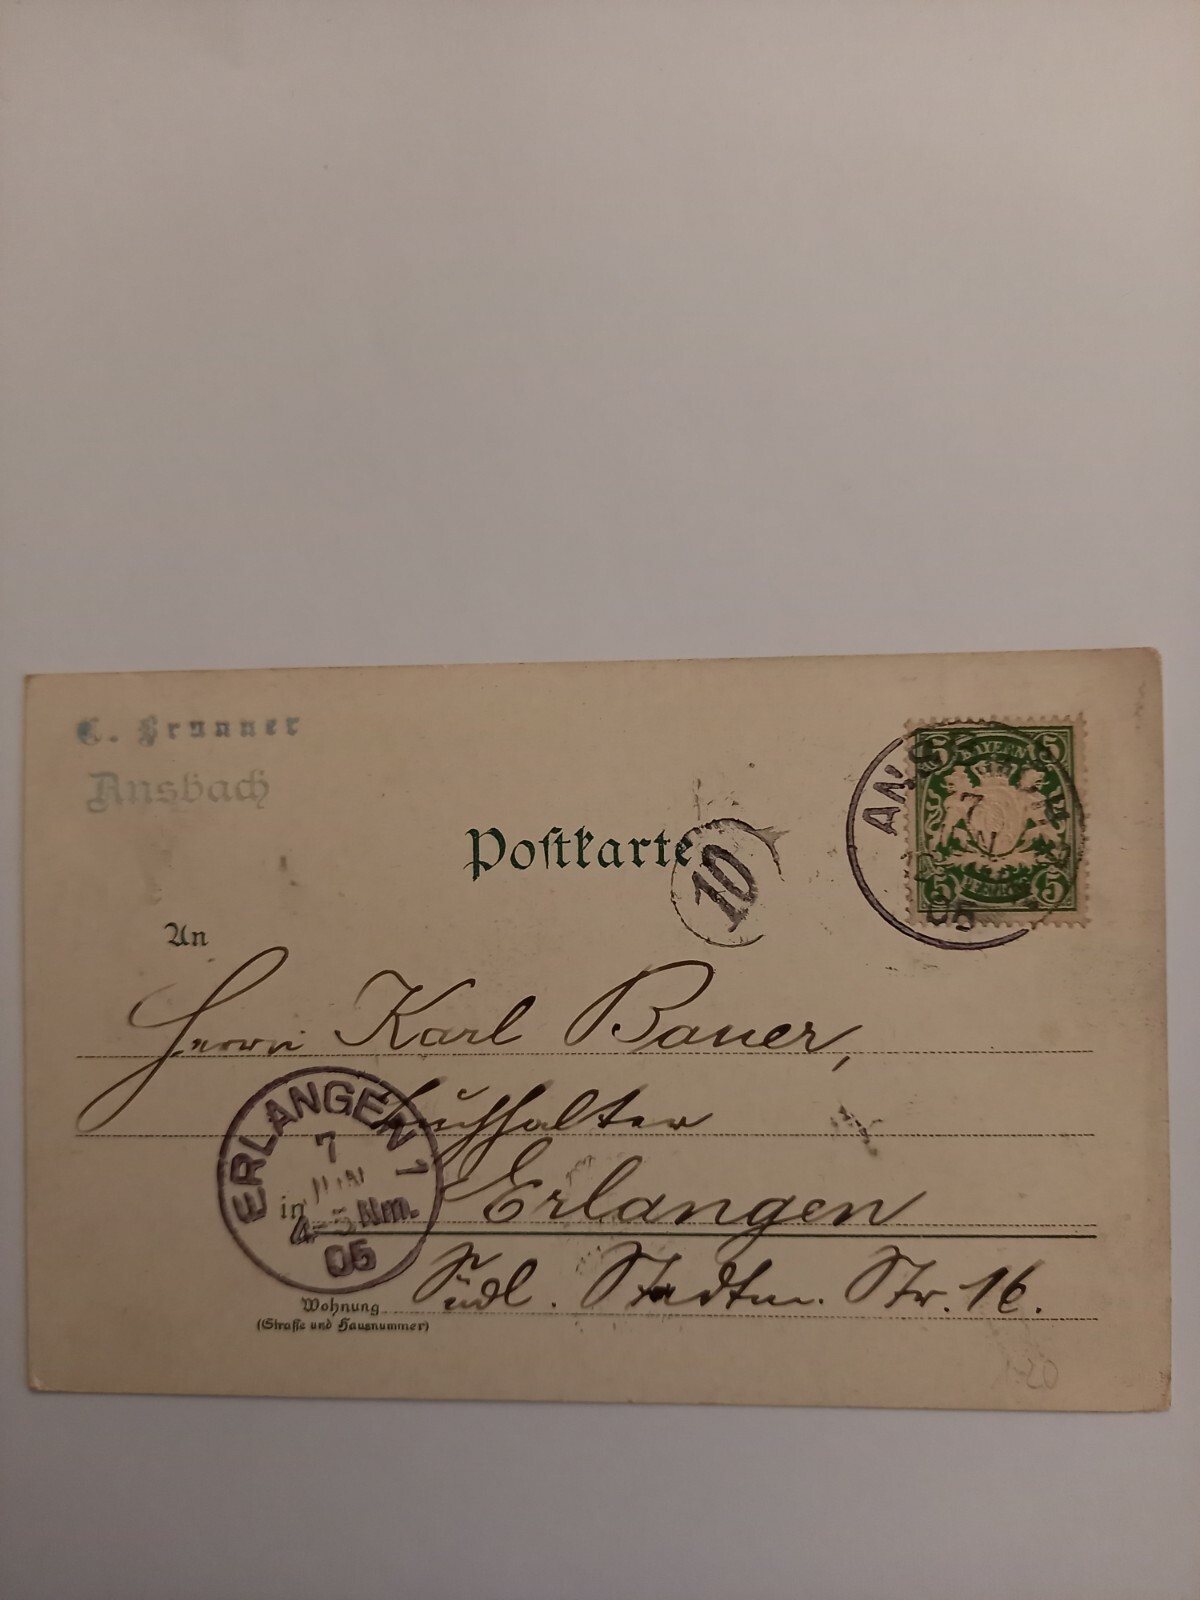 C. Brunner
Ansbach
BAYERN
5 5
7
5 PFENNIG 5
05
Postkarte
10
An
Herrn Karl Bauer,
Buchhalter
ERLANGEN 1
7
JUN
4-5 Nm.
05
in Erlangen
Südl. Stadtm. Str. 16.
Wohnung
(Straße und Hausnummer)